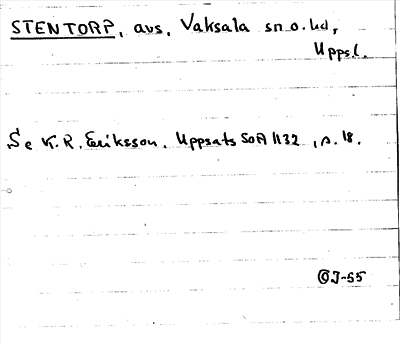 STENTORP, avs, Vaksala sn o. hd,
Uppsl.
Se K.R. Eriksson, Uppsats SOA 1132, s. 18.
OJ-55